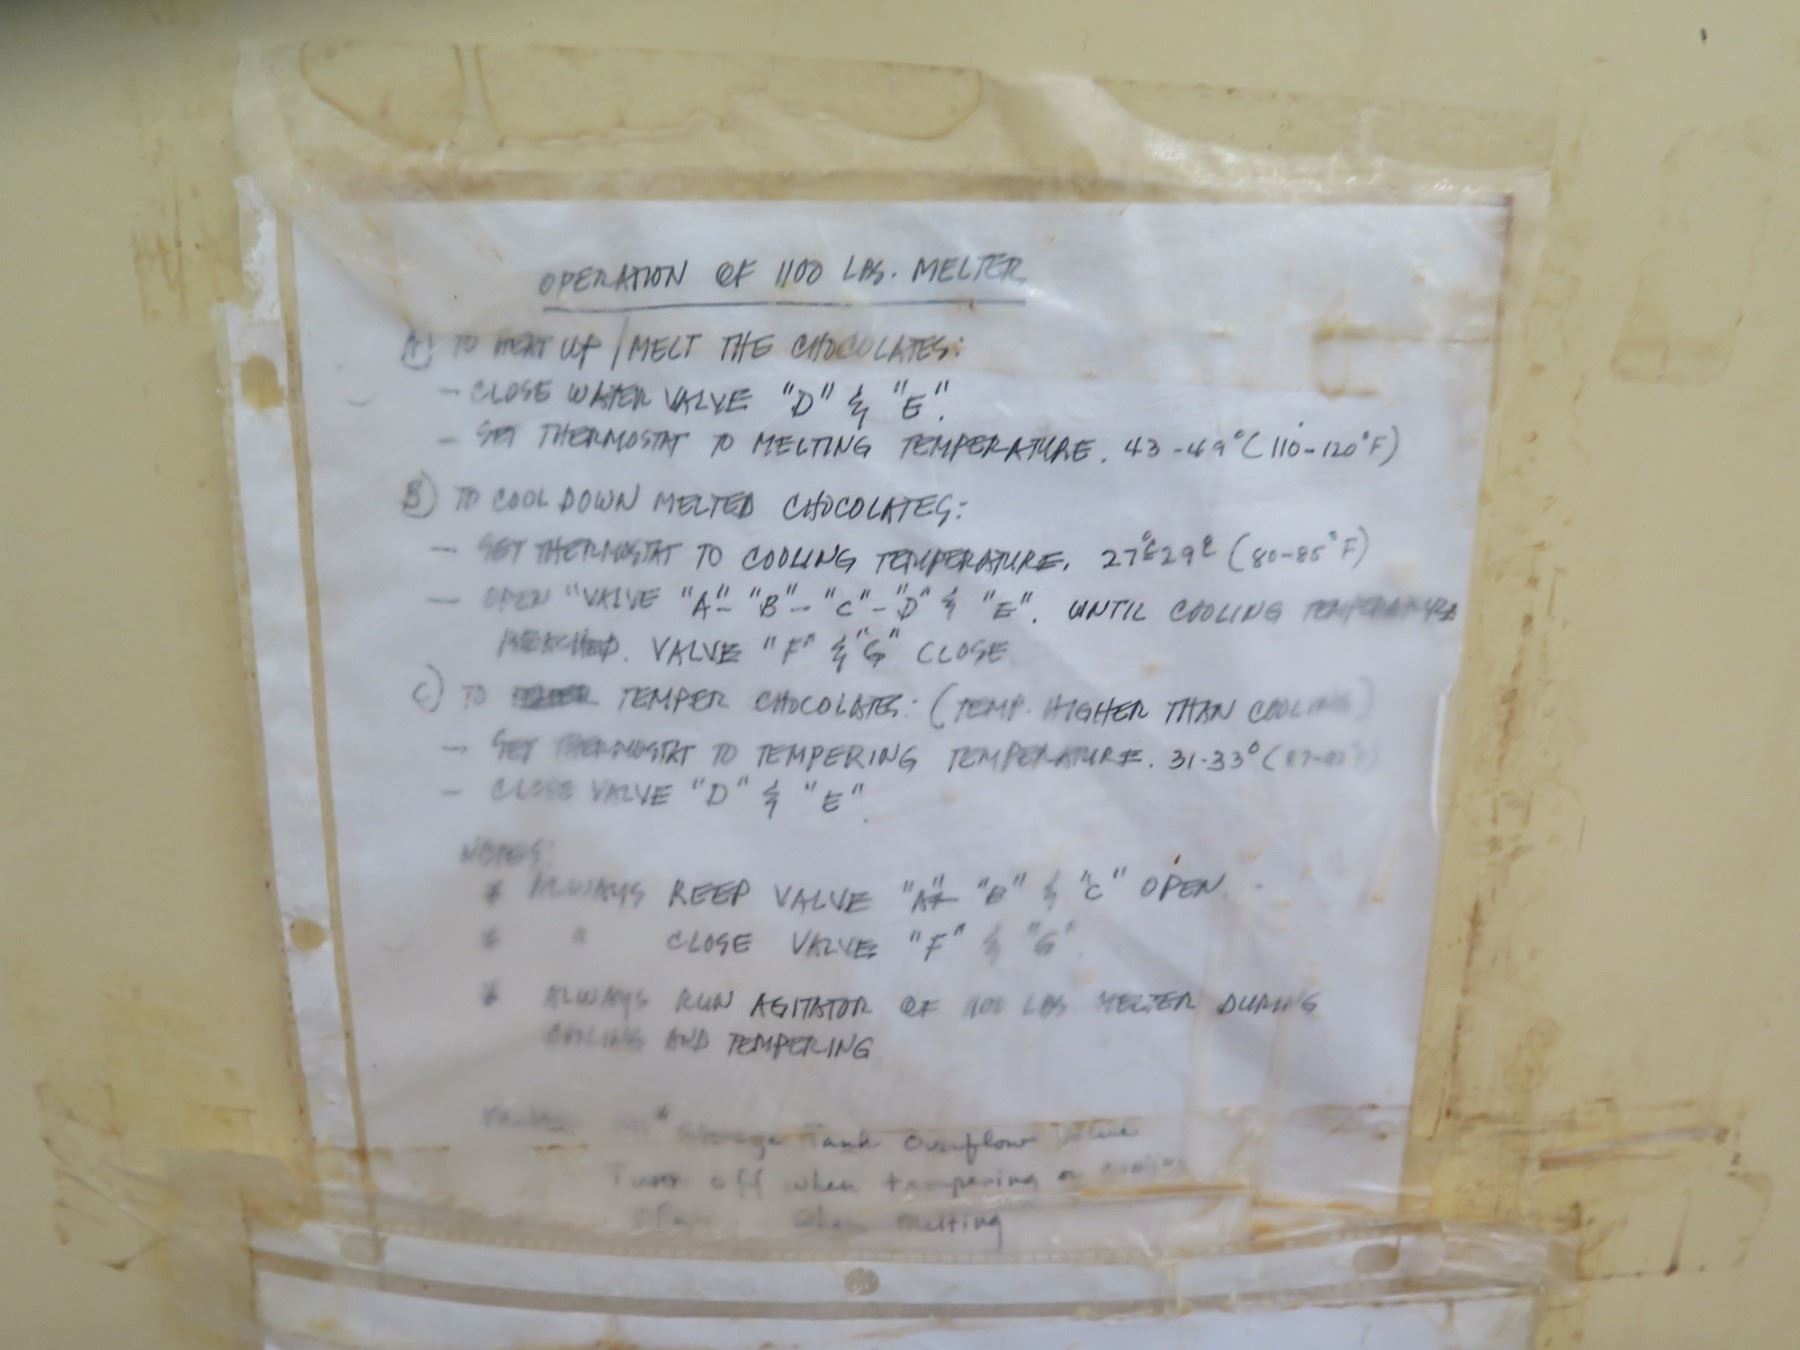 OPERATION OF 1100 LBS. MELTER
A) TO HEAT UP / MELT THE CHOCOLATES:
- CLOSE WATER VALVE "D" & "E".
- SET THERMOSTAT TO MELTING TEMPERATURE. 43-49° (110-120°F)
B) TO COOL DOWN MELTED CHOCOLATES:
- SET THERMOSTAT TO COOLING TEMPERATURE. 27°-29° (80-85°F)
- OPEN "VALVE "A"- "B"- "C"- "D" & "E". UNTIL COOLING TEMPERATURE
REACHED. VALVE "F" & "G" CLOSE
C) TO TEMPER CHOCOLATES: (TEMP. HIGHER THAN COOLING)
- SET THERMOSTAT TO TEMPERING TEMPERATURE. 31-33°
- CLOSE VALVE "D" & "E".
NOTES:
* ALWAYS KEEP VALVE "A" "B" & "C" OPEN.
* " CLOSE VALVE "F" & "G"
* ALWAYS RUN AGITATOR OF 1100 LBS MELTER DURING
COOLING AND TEMPERING
Storage Tank Overflow Valve
Turn off when tempering or cooling
when melting